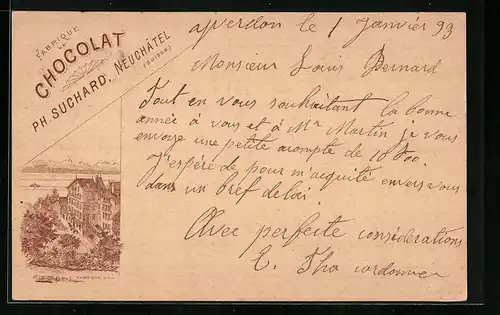 FABRIQUE
DE
CHOCOLAT
PH. SUCHARD, NEUCHÂTEL
(SUISSE)
Yverdon le 1 Janvier 93
Monsieur Louis Bernard
Tout en vous souhaitant la bonne
année à vous et à Mr Martin je vous
envoye une petite acompte de 10
J'espère de pour m'acquité envers vous
dans un bref delai.
Avec perfecte considerations
E. cordonnier
FABRIQUE